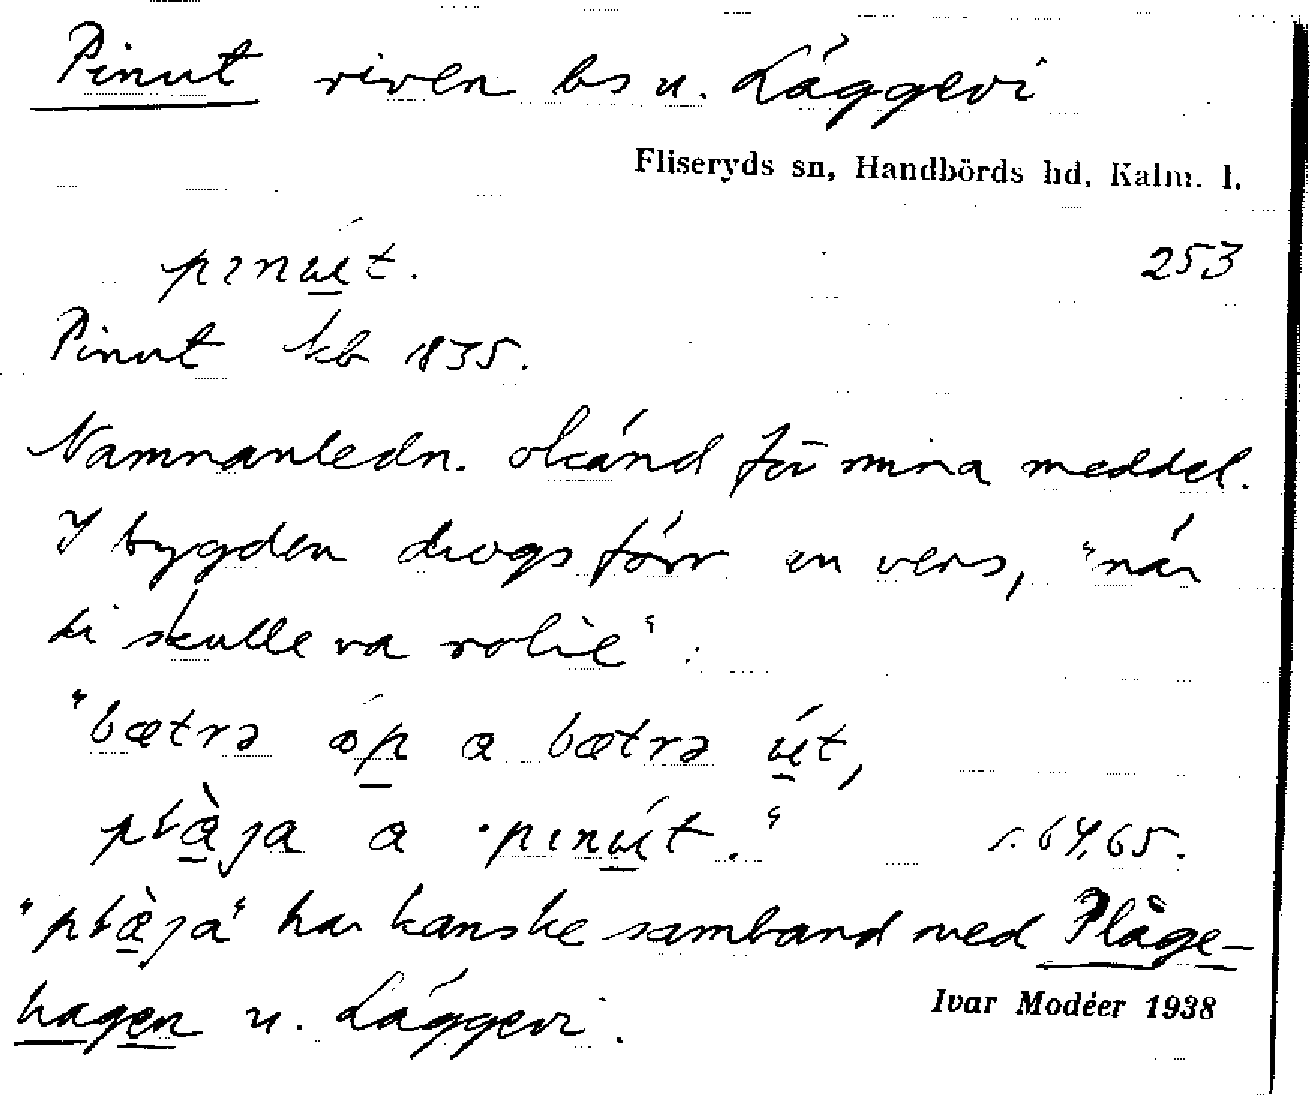 Pinut riven bs u. Läggevi
Fliseryds sn, Handbörds hd, Kalm. l.
pınút. 253
Pinut kb 1835.
Namnanledn. okänd för mina meddel.
I bygden drogs förr en vers, "når
di skulle va rolie":
"bætrə óp a bætrə út,
płæ̀ja a pınút." s. 64,65.
"płæ̀ja" har kanske samband med Plåge-
hagen u. Läggevi.
Ivar Modéer 1938